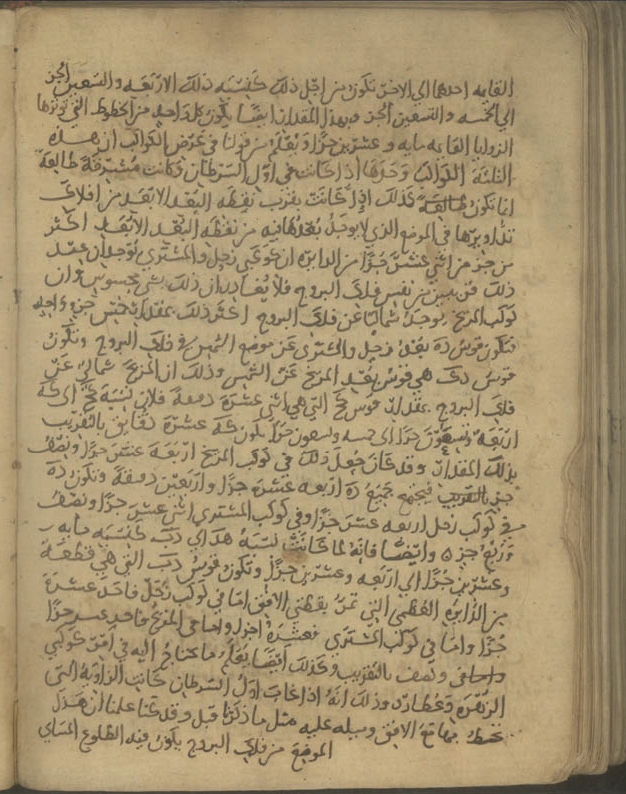 القايمه احدها الي الاخر تكون من اجل ذلك كنسبه ذلك الاربعه والتسعين الجز
الي الخمسه والتسعين الجز وبهذا المقدار ايضا يكون كل واحد من الخطوط التي توترها
الزوايا القايمه مايه وعشرين جزا ونعلم من قولنا في عرض الكواكب ان هذه
الثلثة الكواكب وحدها اذا كانت في اول السرطان وكانت مشرقة طالعة
انما تكون كذلك اذا كانت بقرب نقطه البعد الابعد من افلاك
تداويرها في الموضع الذي لا يوجد بعدها فيه من نقطه البعد الابعد اكثر
من جز من اثني عشر جزا من الدايره ان كوكبي زحل والمشتري يوجدان عند
ذلك قريبين من نفس فلك البروج فلا يغادران ذلك بشي محسوس وان
كوكب المريخ يوجد شماليا عن فلك البروج اكثر ذلك بمقدار خمس جزء واحد
فتكون قوس ده بعد زحل والمشتري عن موضع الشمس في فلك البروج وتكون
قوس دك هي قوس بعد المريخ عن الشمس وذلك ان المريخ شمالي عن
فلك البروج بمقدار قوس كح التي هي اثني عشرة دقيقة فلان نسبة كح الي كه
اربعة وتسعون جزا الي خمسه وتسعون جزا يكون كه عشرة دقايق بالتقريب
بذلك المقدار وقد كان جعل ذلك في كوكب المريخ اربعة عشر جزا ونصف
جز بالتقريب فيجتمع جميع ده اربعه عشر جزا واربعين دقيقة وتكون ده
في كوكب زحل اربعه عشر جزا وفي كوكب المشتري اثني عشر جزا ونصف
وربع جزء وايضا فانه لما كانت نسبة هد الي دب كنسبه مايه
وعشرين جزا الي اربعه وعشرين جزا وتكون قوس دب التي هي قطعة
من الدايره العظمي التي تمر بقطبي الافق اما في كوكب زحل فاحد عشرة
جزا واما في كوكب المشتري فعشرة اجزا واما في المريخ فاحد عشر جزا
ونصف بالتقريب وكذلك ايضا يعلم ما يحتاج اليه في امر كوكبي
الزهرة وعطارد وذلك انه اذا كانت اول السرطان كانت الزاويه التي
تحيط بها مع الافق وميله عليه مثل ما ذكرنا قبل وقد كنا علمنا ان هذا
الموضع من فلك البروج يكون فيه الطلوع المساي